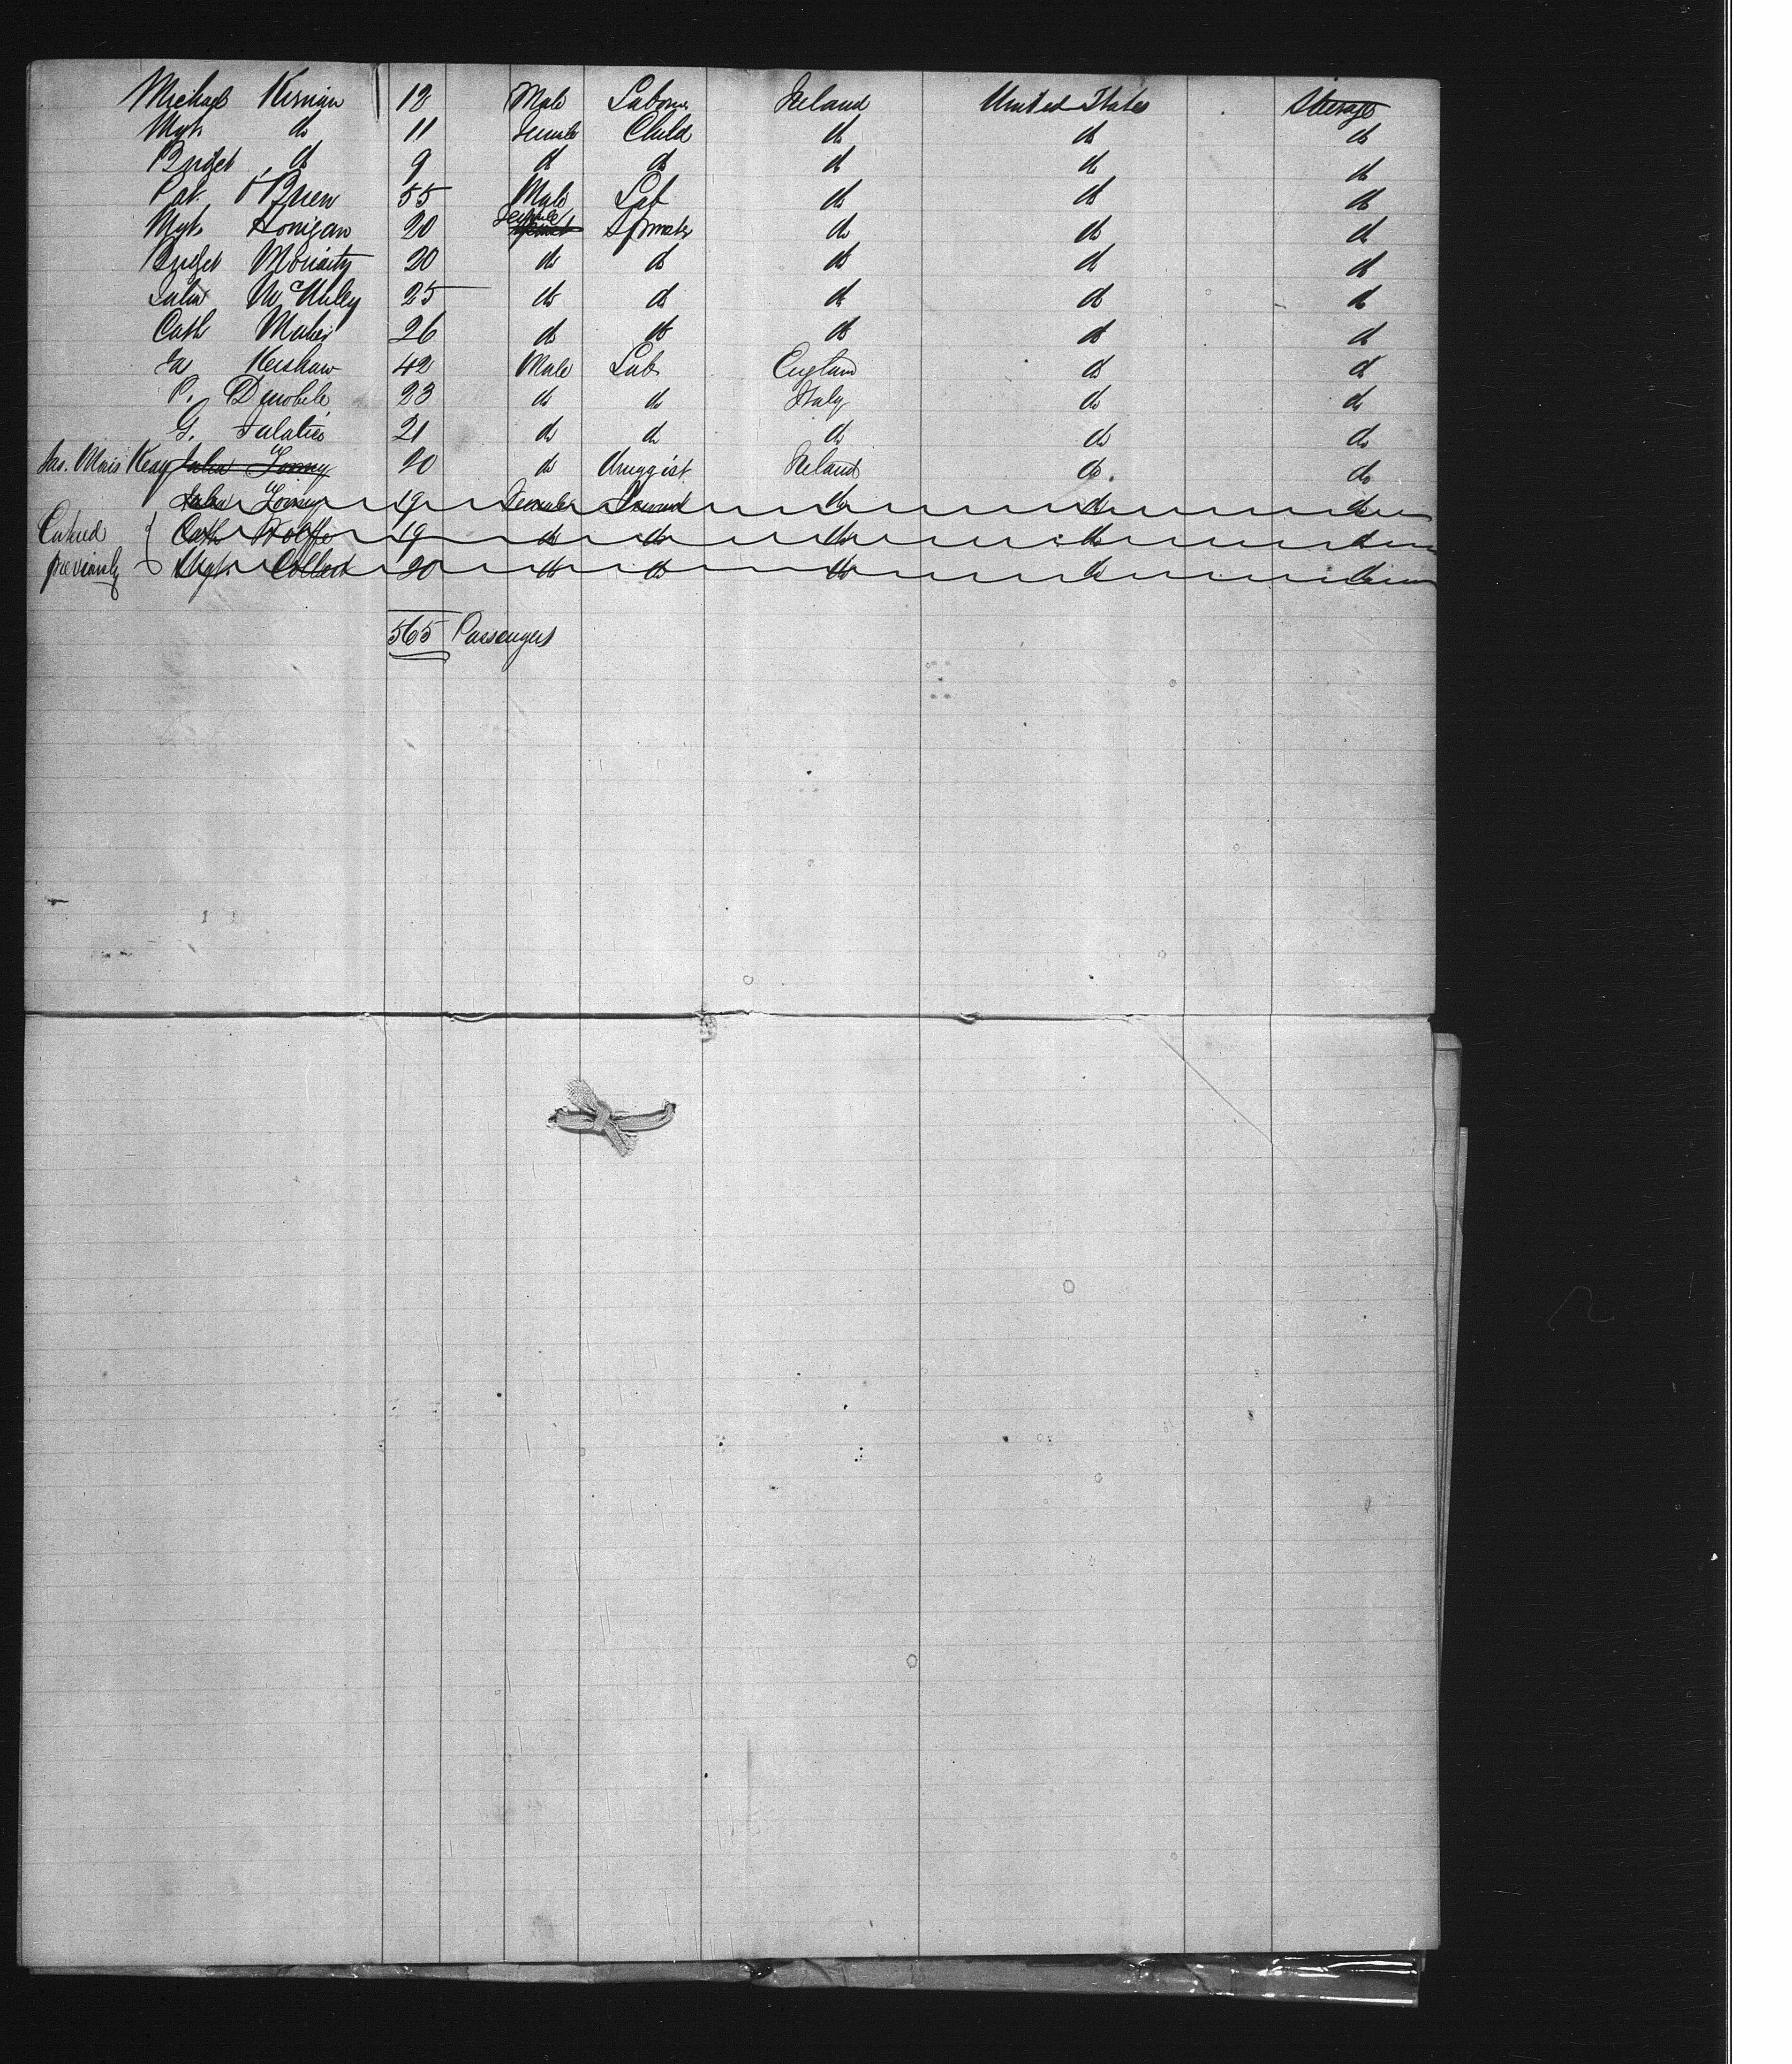 Michael Kernan 12 Male Labourer Ireland United States Steerage
Mgt. do 11 Female Child do do do
Bridget do 9 do do do do do
Pat. O'Brien 55 Male Lab do do do
Mgt. Honigan 20 Female Spinster do do do
Bridget Moriarty 20 do do do do do
Julia 25 do do do do do
Cath Maher 26 do do do do do
Ja Kershaw 42 Male Lab England do do
P. 23 do do Italy do do
G. 21 do do do do do
Jas. Keay Julia 20 do druggist Ireland do. do
Julia 19 Female Servant do do do
Entered Cath Wolffe 19 do do do do do
previously Mgt. 20 do do do do do
565 Passengers